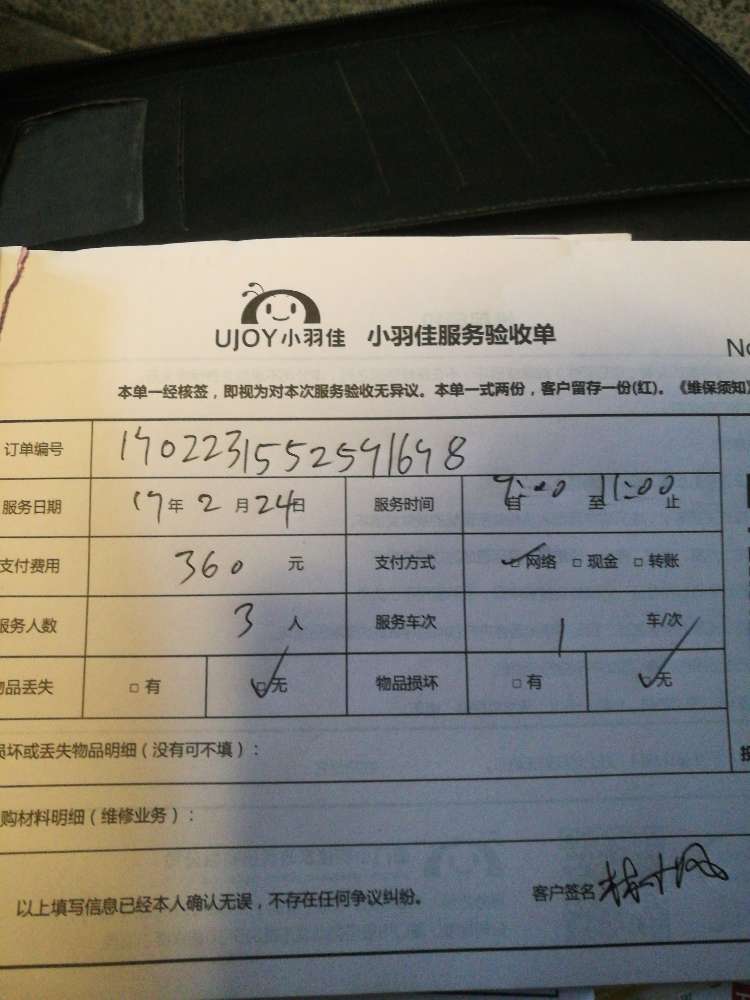 UJOY小羽佳 小羽佳服务验收单
No
本单一经核签，即视为对本次服务验收无异议。本单一式两份，客户留存一份(红)。《维保须知》
订单编号 1702231552591698
服务日期 17年2月24日 服务时间 自9:00至11:00止
支付费用 360元 支付方式 ☑网络 □现金 □转账
服务人数 3人 服务车次 1 车/次
物品丢失 □有 ☑无 物品损坏 □有 ☑无
损坏或丢失物品明细（没有可不填）：
购材料明细（维修业务）：
以上填写信息已经本人确认无误，不存在任何争议纠纷。 客户签名